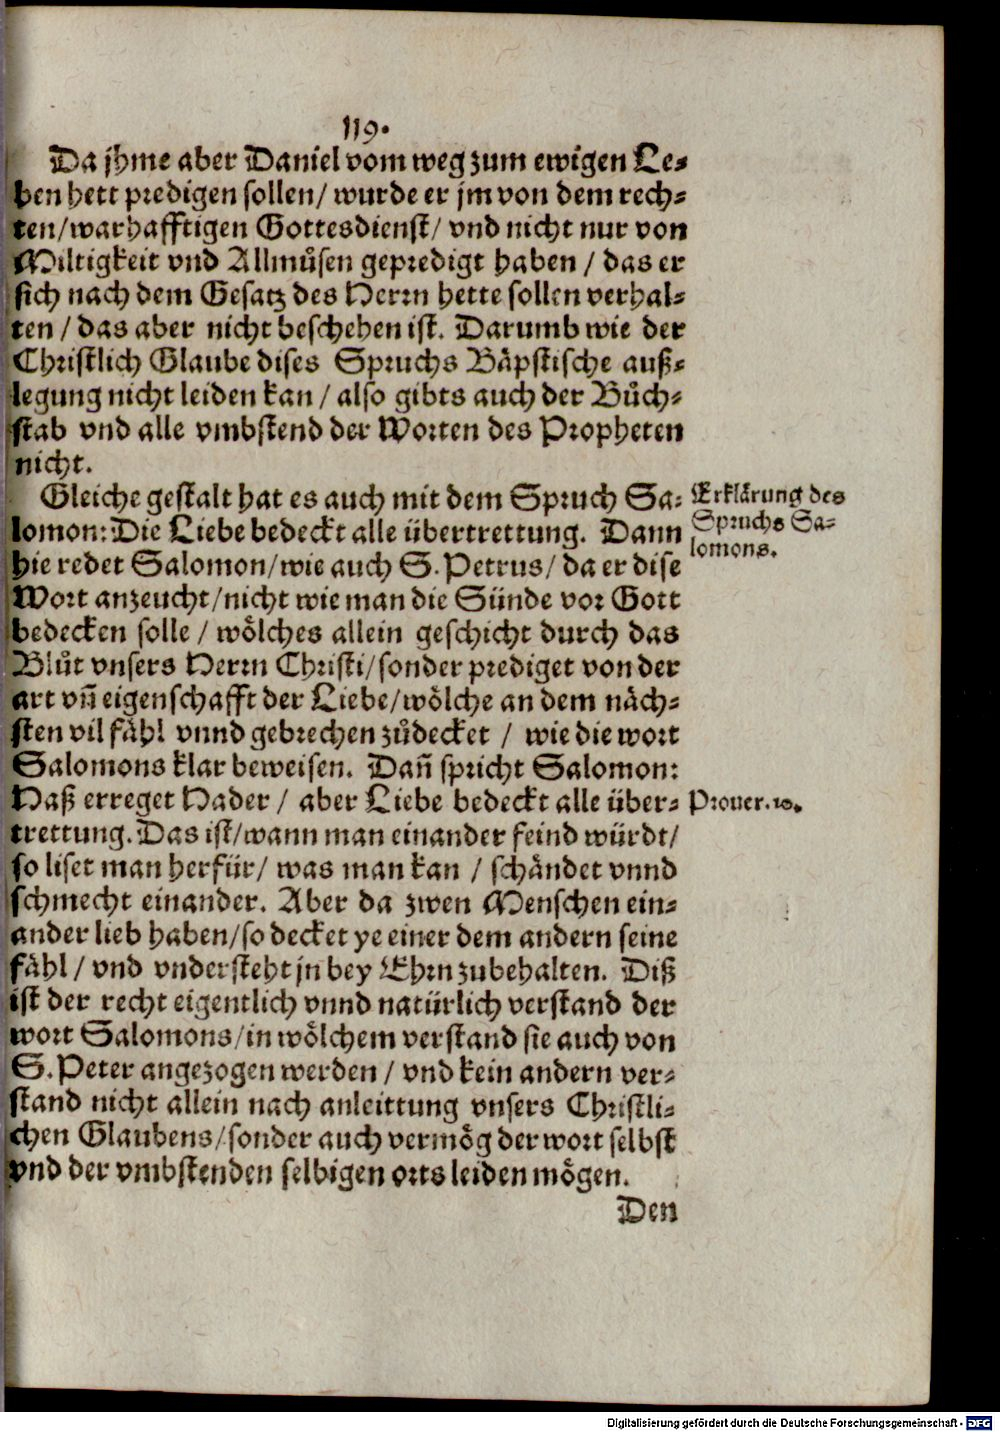 119.
Da jhme aber Daniel vom weg zum ewigen Le-
ben hett predigen sollen/ wurde er jm von dem rech-
ten/warhafftigen Gottesdienst/ vnd nicht nur von
Miltigkeit vnd Allmůsen gepredigt haben / das er
sich nach dem Gesatz des Herrn hette sollen verhal-
ten / das aber nicht beschehen ist. Darumb wie der
Christlich Glaube dises Spruchs Bäpstische auß-
legung nicht leiden kan / also gibts auch der Bůch-
stab vnd alle vmbstend der Worten des Propheten
nicht.
Gleiche gestalt hat es auch mit dem Spruch Sa-
lomon: Die Liebe bedeckt alle übertrettung. Dann
hie redet Salomon/wie auch S. Petrus/ da er dise
Wort anzeucht/nicht wie man die Sünde vor Gott
bedecken solle / wölches allein geschicht durch das
Blůt vnsers Herrn Christi/sonder prediget von der
art vñ eigenschafft der Liebe/wölche an dem näch-
sten vil fähl vnnd gebrechen zůdecket / wie die wort
Salomons klar beweisen. Dañ spricht Salomon:
Haß erreget Hader / aber Liebe bedeckt alle über-
trettung. Das ist/wann man einander feind würdt/
so liset man herfür/ was man kan / schändet vnnd
schmecht einander. Aber da zwen Menschen ein-
ander lieb haben/so decket ye einer dem andern seine
fähl / vnd vndersteht jn bey Ehrn zubehalten. Diß
ist der recht eigentlich vnnd natürlich verstand der
wort Salomons/in wölchem verstand sie auch von
S. Peter angezogen werden / vnd kein andern ver-
stand nicht allein nach anleittung vnsers Christli-
chen Glaubens/sonder auch vermög der wort selbst
vnd der vmbstenden selbigen orts leiden mögen.
Den
Erklärung des
Spruchs Sa-
lomons.
Prouer.10.
Digitalisierung gefördert durch die Deutsche Forschungsgemeinschaft - DFG